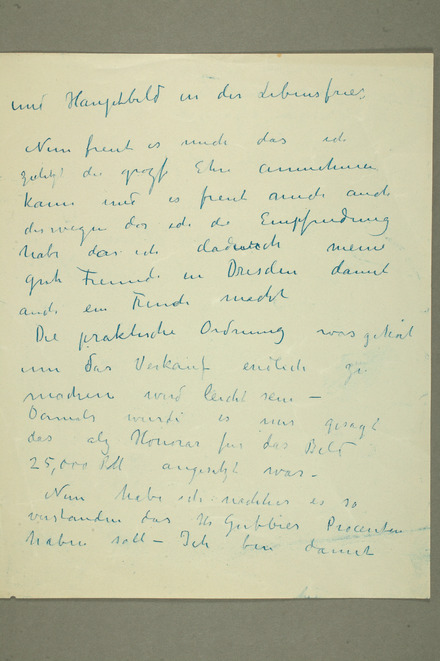 und Hauptbild in der Lebensfries.
Nun freut es mich das ich
zuletzt die große Ehre annehmen
kann und es freut mich auch
deswegen das ich die Empfindung
habe das ich dadurch meine
gute Freunde in Dresden damit
auch ein Freude macht
Die praktische Ordnung was gehört
um das Verkauf endlich zu
machen wird leicht sein –
Damals wurde es mir gesagt
das als Honorar für das Bild
25,000 M angesetzt war –
Nun habe ich nachher es so
verstanden das H Gubbier Procenten
haben soll – Ich bin damit